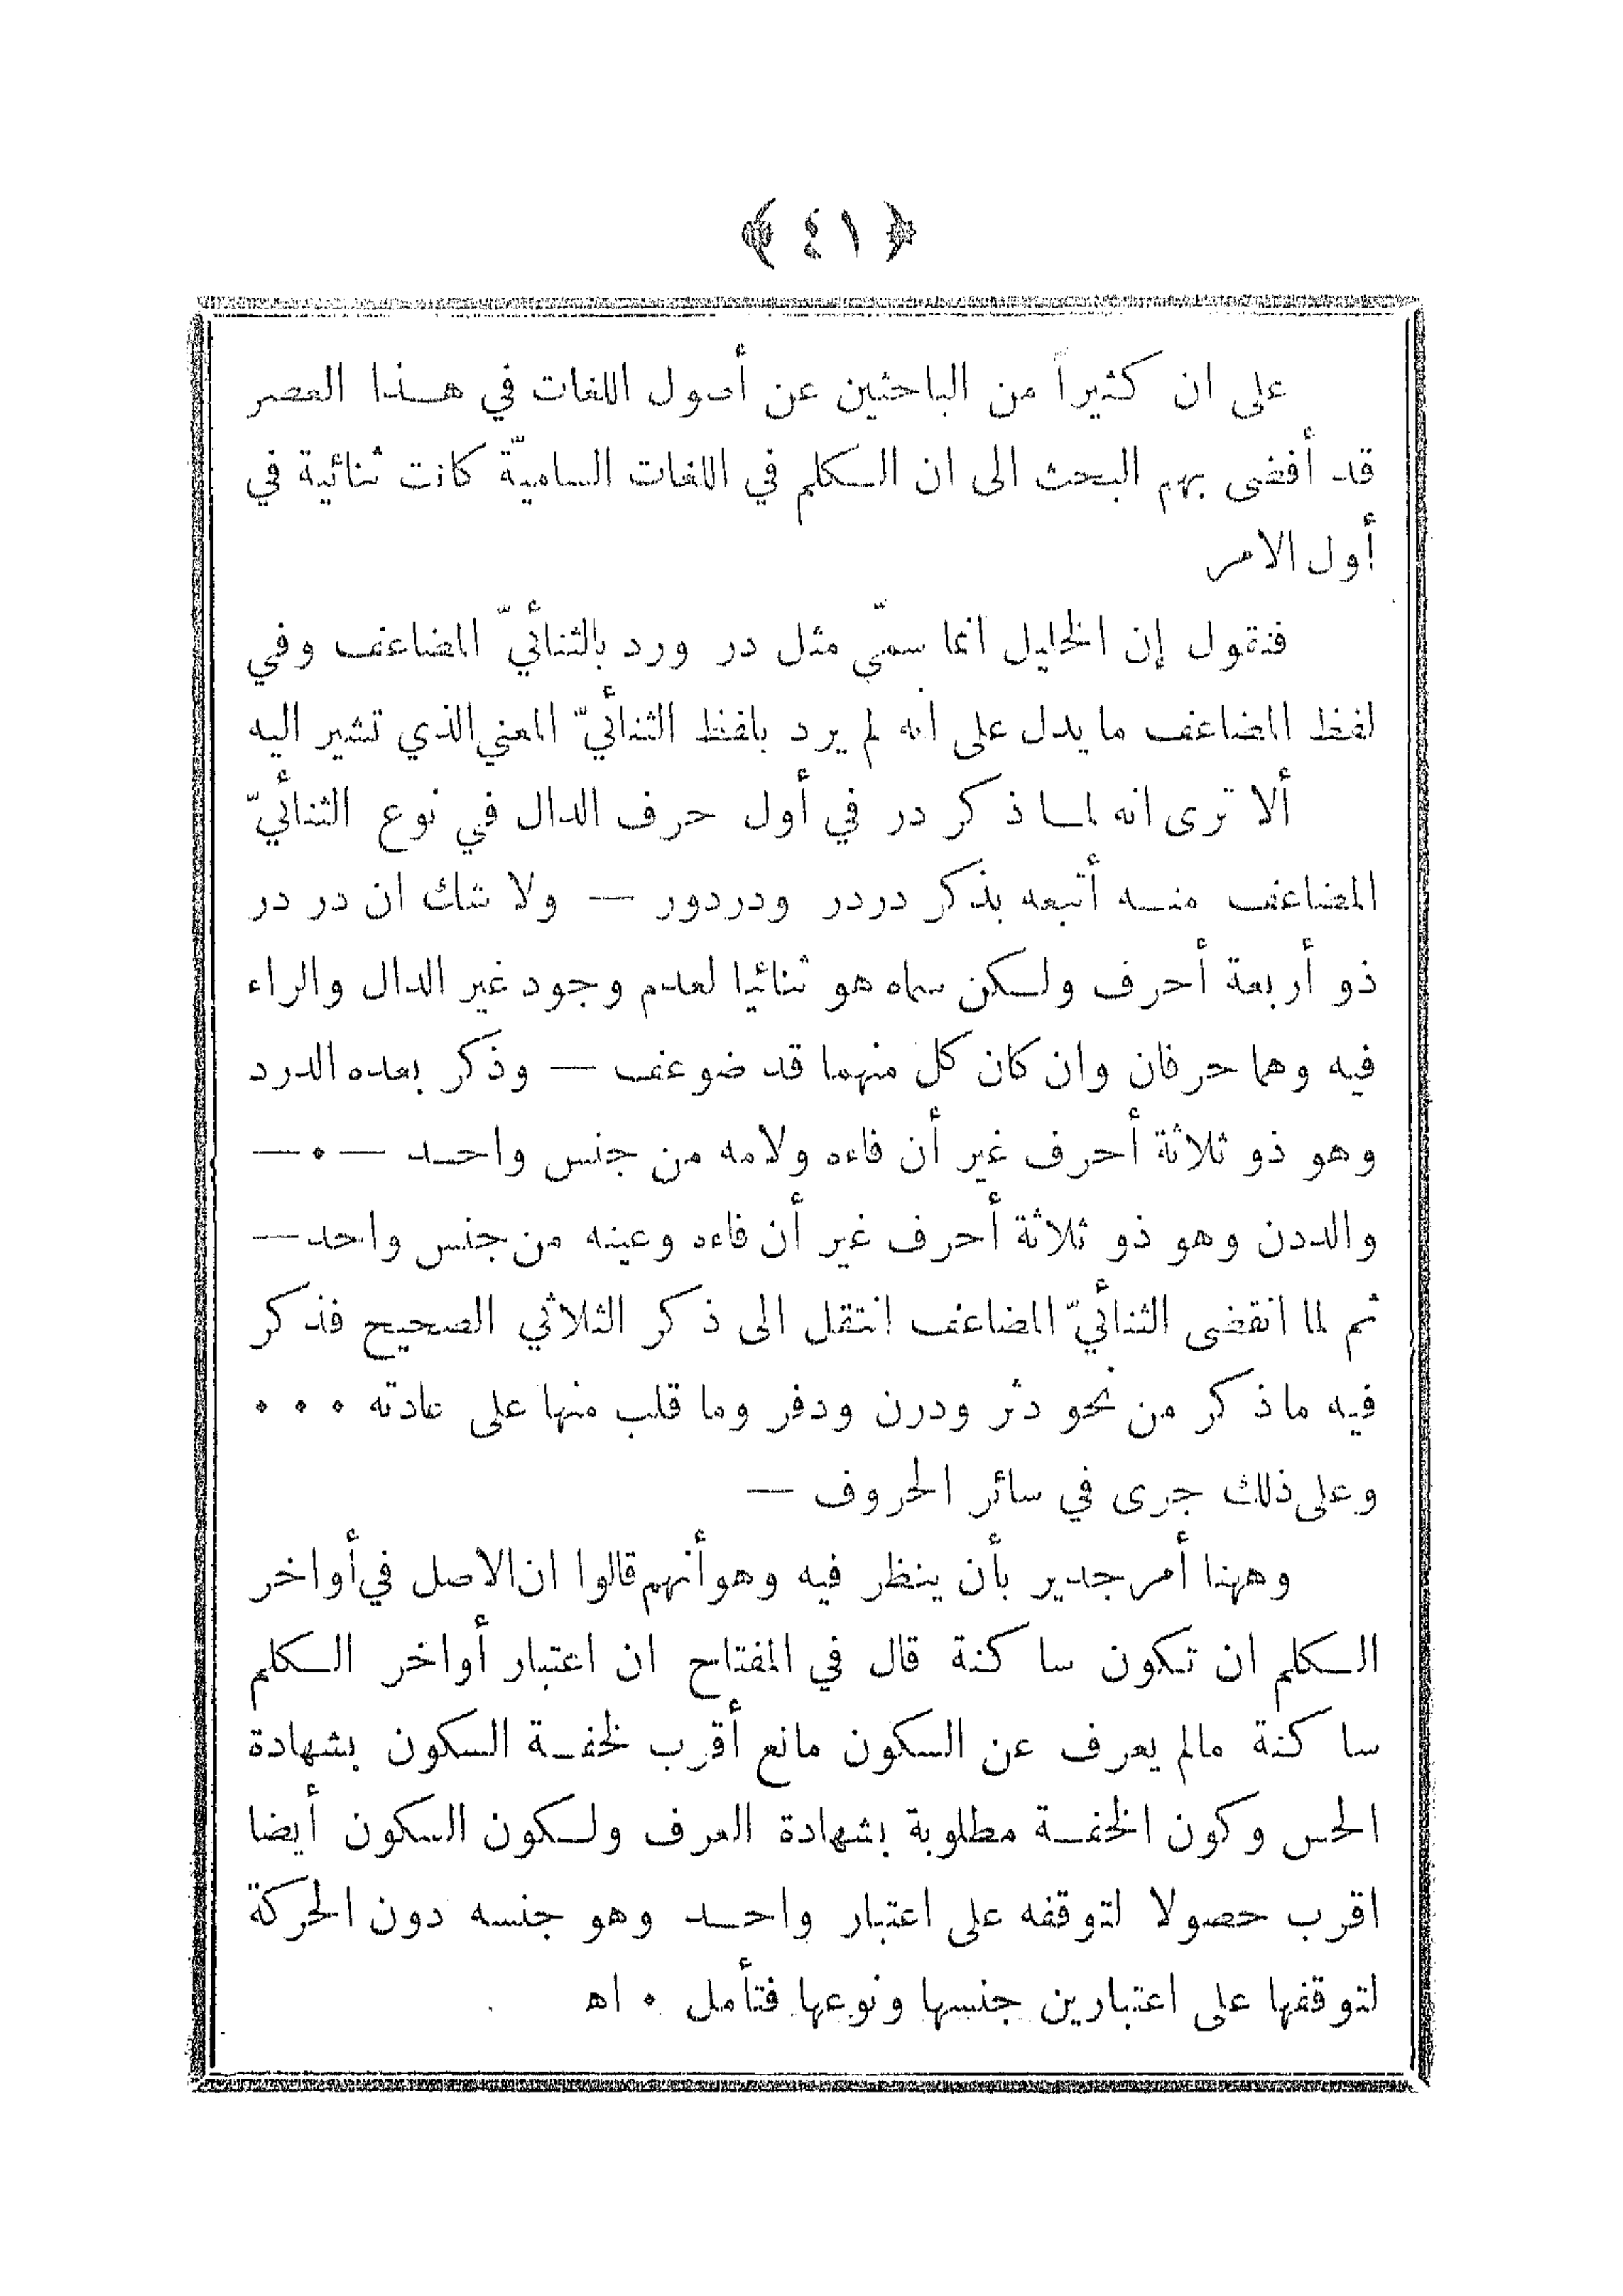 ﴿ ٤١ ﴾
على ان كثيراً من الباحثين عن أصول اللغات في هذا العصر
قد أفضى بهم البحث الى ان الكلم في اللغات الساميّة كانت ثنائية في
أول الامر
فنقول إن الخليل انما سمّي مثل در ورد بالثنأئيّ المضاعف وفي
لفظ المضاعف ما يدل على أنه لم يرد بلفظ الثنأئيّ المعنى الذي تشير اليه
ألا ترى انه لما ذكر در في أول حرف الدال في نوع الثنأئيّ
المضاعف منه أتبعه بذكر دردر ودردور — ولا شك ان در در
ذو أربعة أحرف ولكن سماه هو ثنائيا لعدم وجود غير الدال والراء
فيه وهما حرفان وان كان كل منهما قد ضوعف — وذكر بعده الدرد
وهو ذو ثلاثة أحرف غير أن فاءه ولامه من جنس واحد — ٠ —
والددن وهو ذو ثلاثة أحرف غير أن فاءه وعينه من جنس واحد —
ثم لما انقضى الثنأئيّ المضاعف انتقل الى ذكر الثلاثي الصحيح فذكر
فيه ما ذكر من نحو دثر ودرن ودفر وما قلب منها على عادته ٠ ٠ ٠
وعلى ذلك جرى في سائر الحروف —
وههنا أمر جدير بأن ينظر فيه وهو أنهم قالوا ان الاصل في أواخر
الكلم ان تكون ساكنة قال في المفتاح ان اعتبار أواخر الكلم
ساكنة مالم يعرف عن السكون مانع أقرب لخفة السكون بشهادة
الحس وكون الخفة مطلوبة بشهادة العرف ولكون السكون أيضا
اقرب حصولا لتوقفه على اعتبار واحد وهو جنسه دون الحركة
لتوقفها على اعتبارين جنسها ونوعها فتأمل ٠ اه